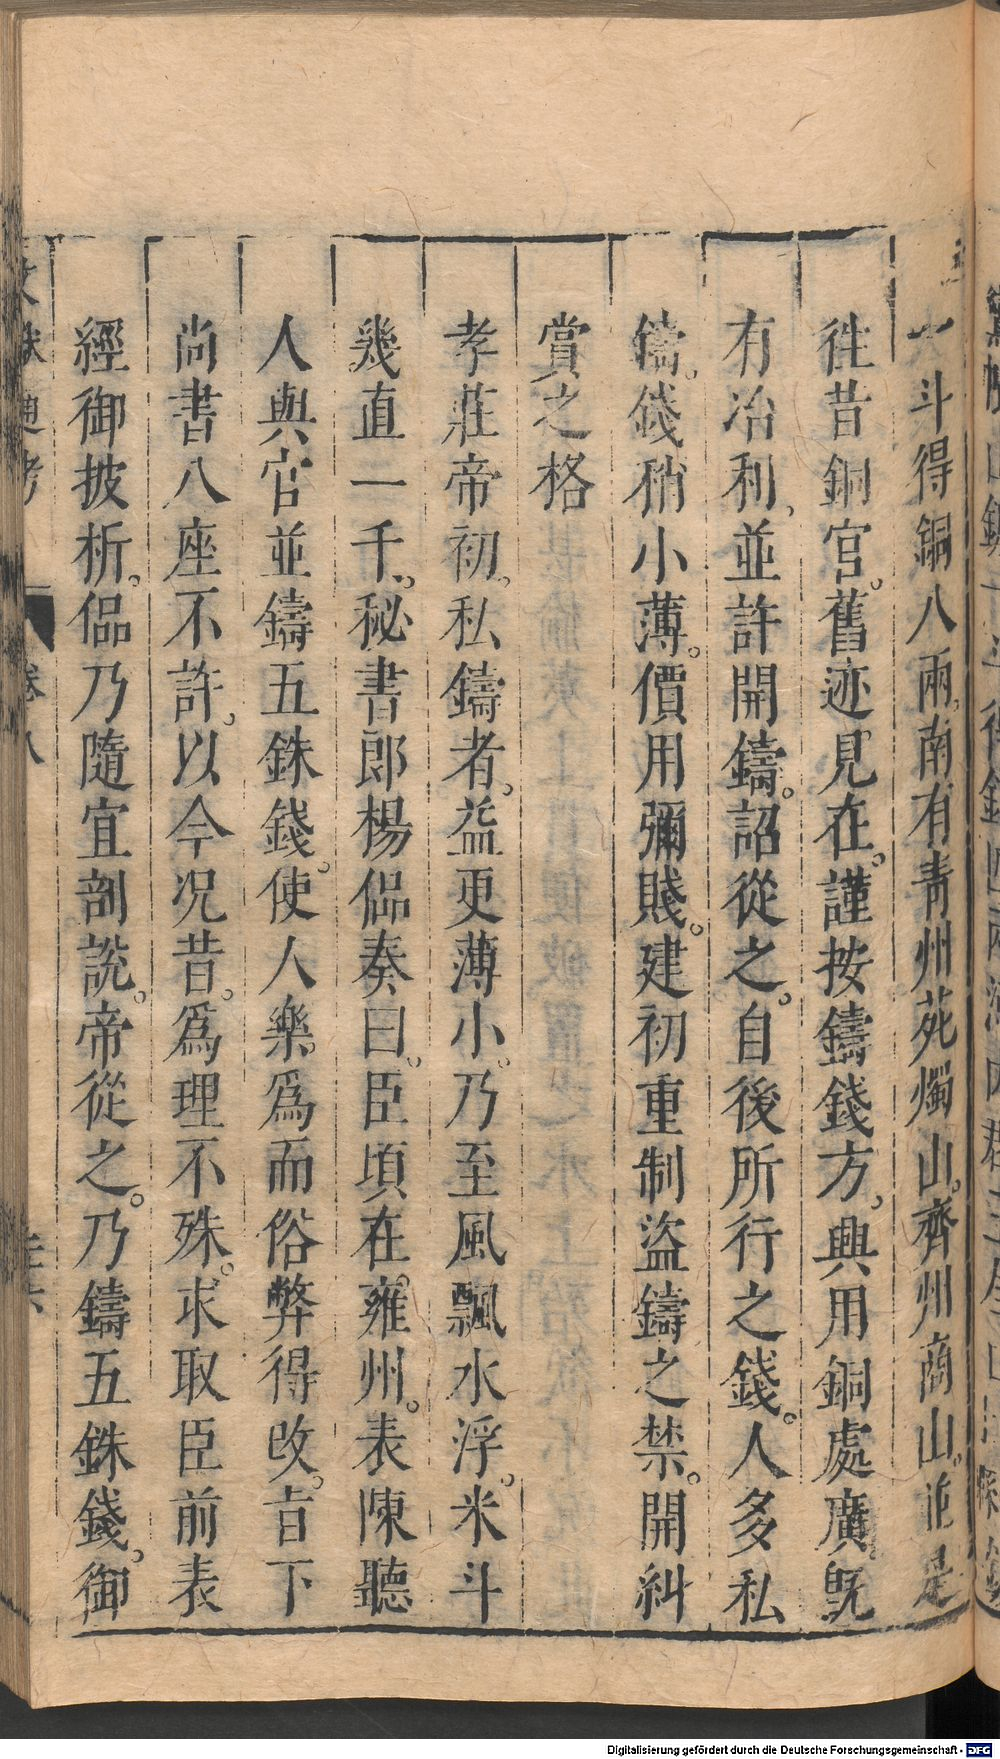 一斗得銅八兩南有青州苑燭山。齊州商山。並是
往昔銅官。舊迹見在。謹按鑄錢方。興用銅處廣。既
有冶利、並許開鑄。詔從之。自後所行之錢。人多私
鑄。錢稍小薄。價用彌賤。建初重制盜鑄之禁。開糾
賞之格
孝莊帝初。私鑄者。益更薄小。乃至風飄水浮。米斗
幾直一千。秘書郎楊侃奏曰。臣頃在雍州。表陳聽
人與官並鑄五銖錢。使人樂為而俗弊得改。旨下
尚書八座不許。以今况昔。為理不殊。求取臣前表
經御披析。侃乃隨宜剖說。帝從之。乃鑄五銖錢。御
文獻通考 卷八
Digitalisierung gefördert durch die Deutsche Forschungsgemeinschaft - DFG